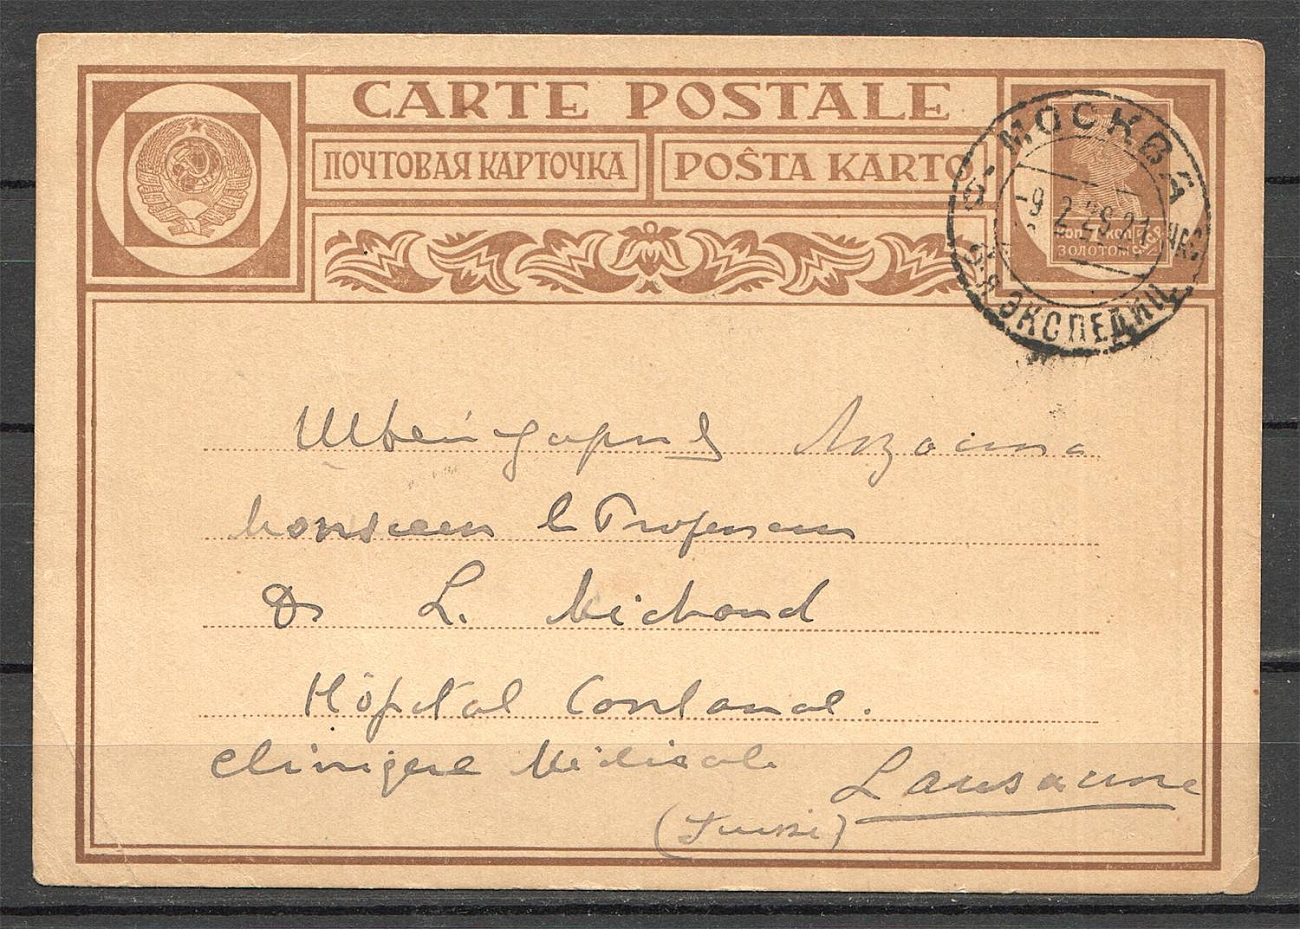 CARTE POSTALE
ПОЧТОВАЯ КАРТОЧКА POŜTA KARTO
МОСКВА
-9 2 29 21 ЧАС
ЭКСПЕДИЦ
7 КОП
ЗОЛОТОМ
Швейцария Лозанна
Monsieur le Professeur
Dr L. Michaud
Hôpital Cantonal.
Clinique Médicale Lausanne
(Suisse)